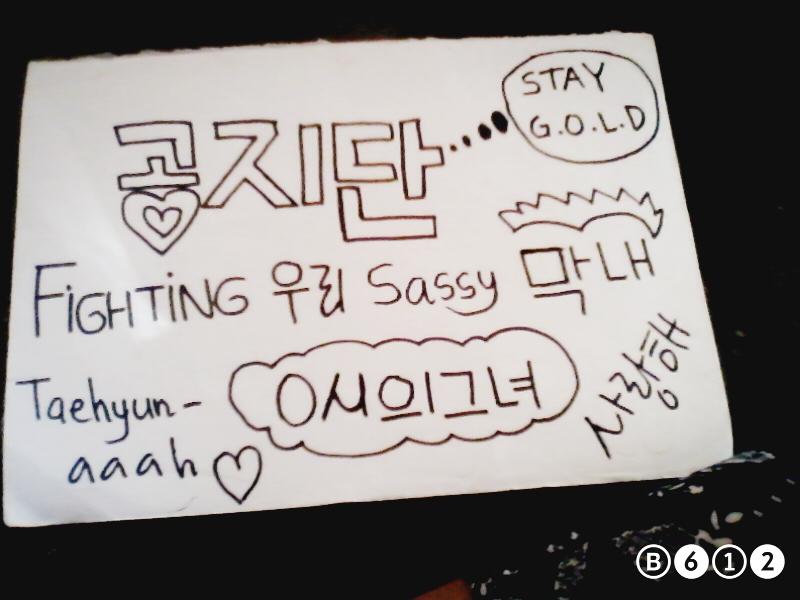 STAY
G.O.L.D
공지단
FiGHTiNG 우리 Sassy 막내
Taehyun-
aaah
0시의그녀
사랑해
B612